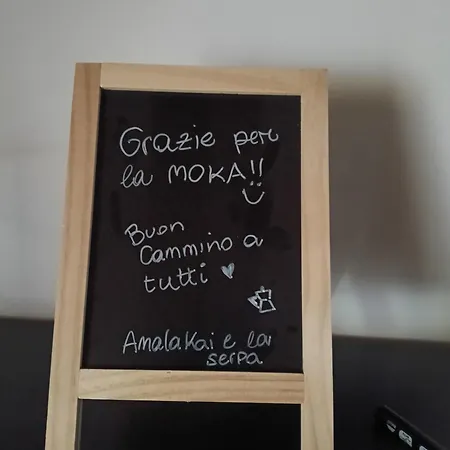 Grazie per
la MOKA!!
Buon
Cammino a
tutti
Amalakai e la
serpa